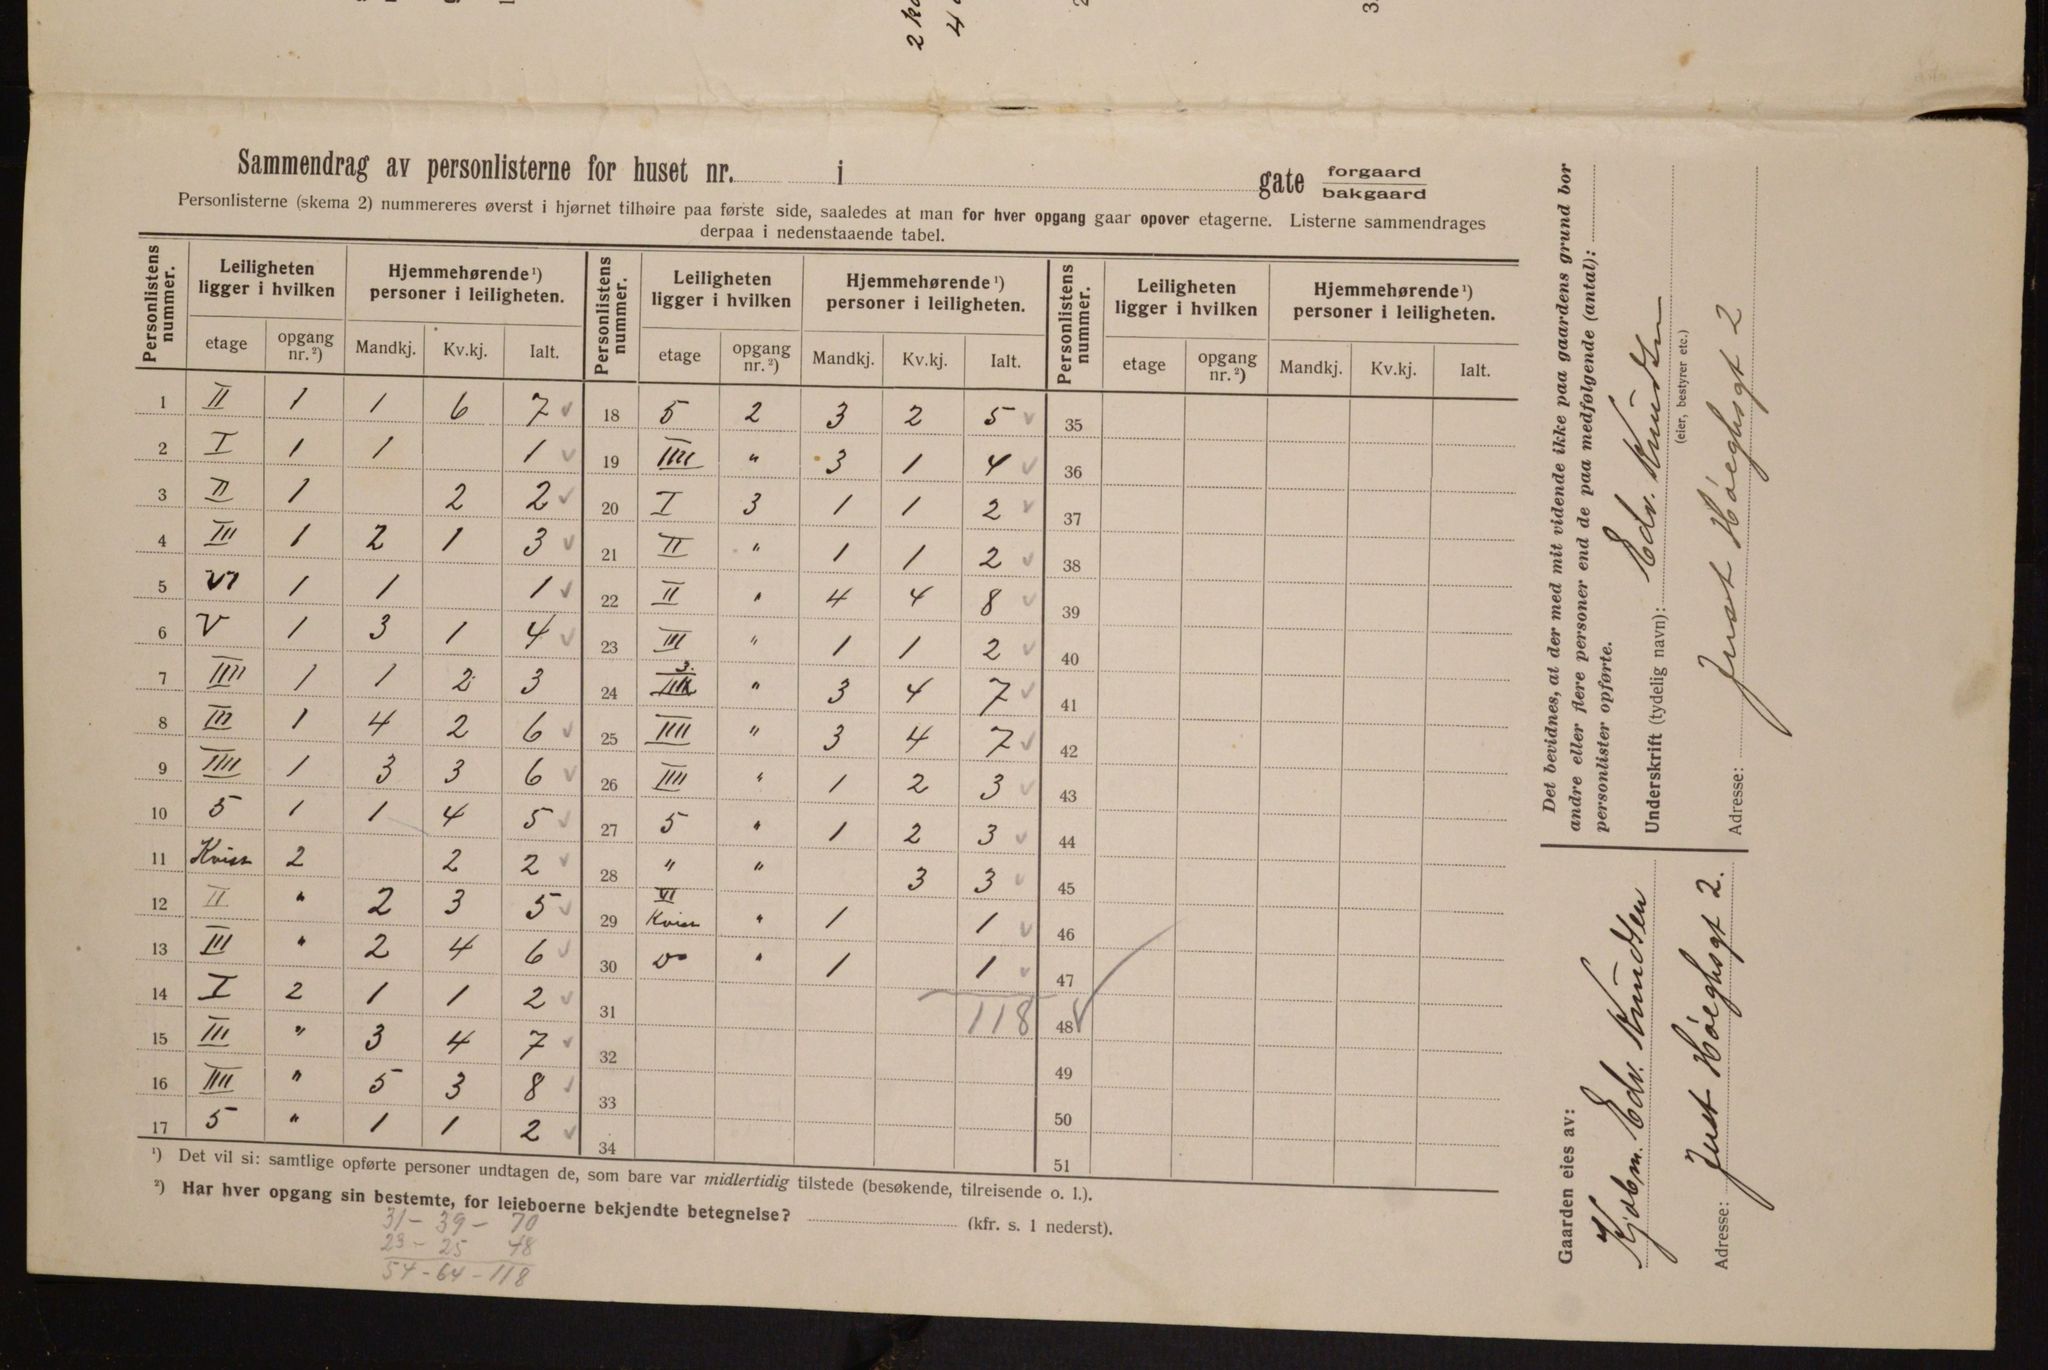 Sammendrag av personlisterne for huset nr. i gate forgaard bakgaard
Personlisterne (skema 2) nummereres øverst i hjørnet tilhøire paa første side, saaledes at man for hver opgang gaar opover etagerne. Listerne sammendrages
derpaa i nedenstaaende tabel.
Personlistens nummer. Leiligheten ligger i hvilken Hjemmehørende ¹) personer i leiligheten. Personlistens nummer. Leiligheten ligger i hvilken Hjemmehørende ¹) personer i leiligheten. Personlistens nummer. Leiligheten ligger i hvilken Hjemmehørende ¹) personer i leiligheten.
etage opgang nr. ²) Mandkj. Kv.kj. Ialt. etage opgang nr. ²) Mandkj. Kv.kj. Ialt. etage opgang nr. ²) Mandkj. Kv.kj. Ialt.
1 II 1 1 6 7 18 5 2 3 2 5 35
2 I 1 1 1 19 IIII " 3 1 4 36
3 II 1 2 2 20 I 3 1 1 2 37
4 III 1 2 1 3 21 II " 1 1 2 38
5 VI 1 1 1 22 II " 4 4 8 39
6 V 1 3 1 4 23 III " 1 1 2 40
7 IIII 1 1 2 3 24 3. " 3 4 7 41
8 III 1 4 2 6 25 IIII " 3 4 7 42
9 IIII 1 3 3 6 26 IIII " 1 2 3 43
10 5 1 1 4 5 27 5 " 1 2 3 44
11 Kvist 2 2 2 28 " " 3 3 45
12 II " 2 3 5 29 VI Kvist " 1 1 46
13 III " 2 4 6 30 do " 1 1 47
14 I 2 1 1 2 31 118 48
15 III " 3 4 7 32 49
16 IIII " 5 3 8 33 50
17 5 " 1 1 2 34 51
¹) Det vil si: samtlige opførte personer undtagen de, som bare var midlertidig tilstede (besøkende, tilreisende o. l.).
²) Har hver opgang sin bestemte, for leieboerne bekjendte betegnelse? (kfr. s. 1 nederst).
31 - 39 - 70
23 - 25 48
54 - 64 - 118
Det bevidnes, at der med mit vidende ikke paa gaardens grund bor
andre eller flere personer end de paa medfolgende (antal):
personlister opførte.
Underskrift (tydelig navn): Edv. Knudsen
(eier, bestyrer etc.)
Adresse: Just Höeghsgt 2
Gaarden eies av:
Kjøbm. Edv. Knudsen
Adresse: Just Höeghsgt 2.